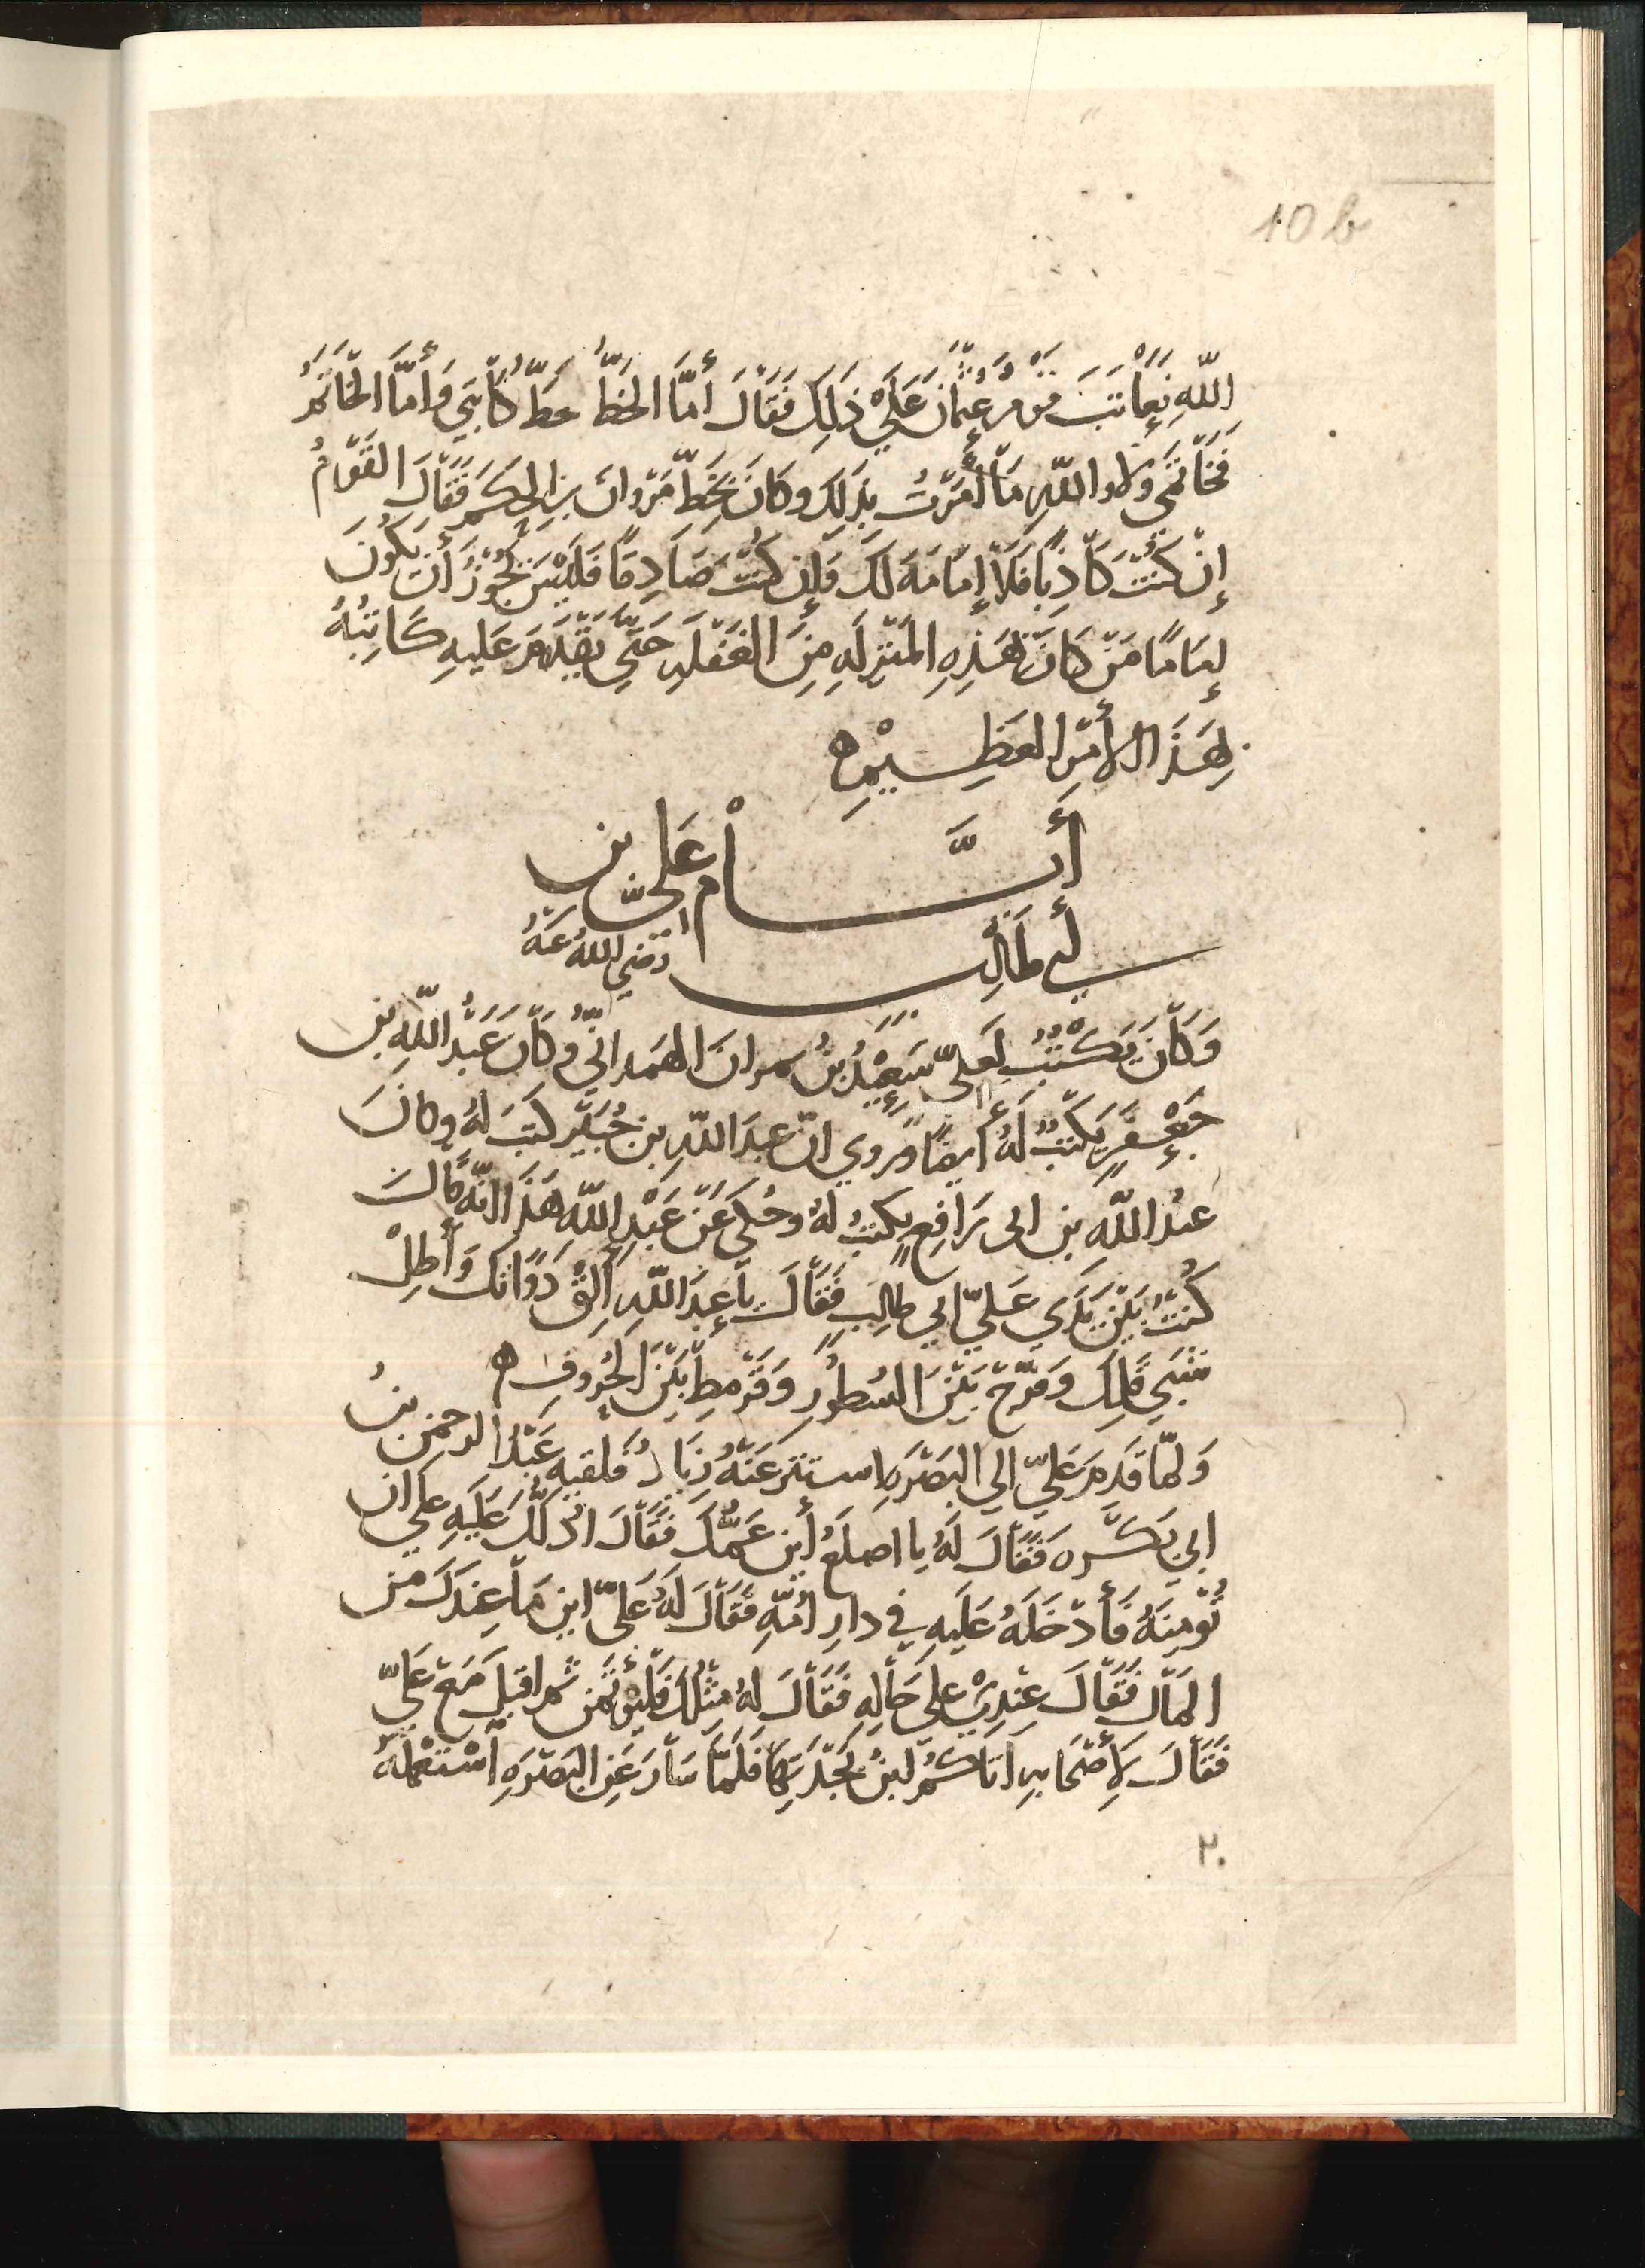 10 b
اللّهِ نِعَاتَبَ قوم عُثمانَ عَليْ ذَلِكَ فَقَالَ أمَّا الخَطُّ خطّ كَاتِبِي وَأمَّا الخَاتَمُ
فَخَاتَمِي وَلا وَاللّهِ مَا أمَرْتُ بِذَلِكَ وكَانَ بِخَطِّ مَرْوانَ بنِ الحَكَم فَقَالَ القَوْمُ
إنْ كُنْتَ كَاذِبًا فَلَا إمَامَةَ لَكَ وَإن كُنْتَ صَادِقًا فَلَيْسَ يَجُوْزُ أن يَكُونَ
إمَامًا مَنْ كَانَ بِهَذِهِ المَنْزِلَهِ مِنَ الغَفْلَهِ حَتَّي يَقْدَمَ عَلَيهِ كَاتِبُهُ
بِهَذَا الأَمْرِ العَظِـيْمِ ه
أيَّــام عَليّ بن
أبي طَالِب رَضيَ اللهُ عَنْهُ
وَكَانَ يَكْتُبُ لِعَليّ سَعِيْدُ بنُ نمران الهَمداني وَكَانَ عَبْدُ اللّهِ بن
جَعْفَرٍ يَكتبُ لَهُ أَيضًا وَرُوِي انّ عبدَ اللّهِ بن جُبَيْر كَتَبَ لَهُ وكانَ
عبدُ اللّهِ بن ابى رَافِعٍ يكتبُ لهُ وحُكي عَنْ عَبْدِ اللّهِ هَذَا انّه قَالَ
كُنتُ بَيْنَ يَدَي عَليّ ابي طالِبٍ فَقَالَ يا عَبدَ اللّهِ أَلِقْ دَوَاتَكَ وَأَطِلْ
سَنِّي قَلمِكَ وَفَرِّجْ بَيْنَ السُطُورِ وَقَرْمِطْ بَيْنَ الحُرُوفِ ه
وَلمّا قَدِمَ عَليّ إلي البَصْرَةِ استتر عَنْهُ زِيَادٌ فَلقيه عَبْدُ الرحمن بنُ
ابي بَكـره فَقَالَ لَهُ يا اصلَعُ أين عَمُّكَ فَقَالَ ادُلّكَ عَلَيهِ علي ان
تُؤْمِنَهُ فَأدْخَلَهُ عَلَيهِ في دارِ امّهِ فَقَالَ لَهُ عَليّ اين مَا عِندَكَ مِن
المَال فَقَالَ عِنْدِيْ علي حَالِهِ فَقَالَ لهُ مِثْلُكَ فَلْيُؤْتَمن ثم اقبَلَ مَعَ عَليّ
فَقَالَ لأصْحَابِهِ اتاكُم ابنُ بَجْدَتِهَا فَلَمّا سَارَ عَنِ البَصْرَهِ اسْتَعْمَلَهُ
٢٠